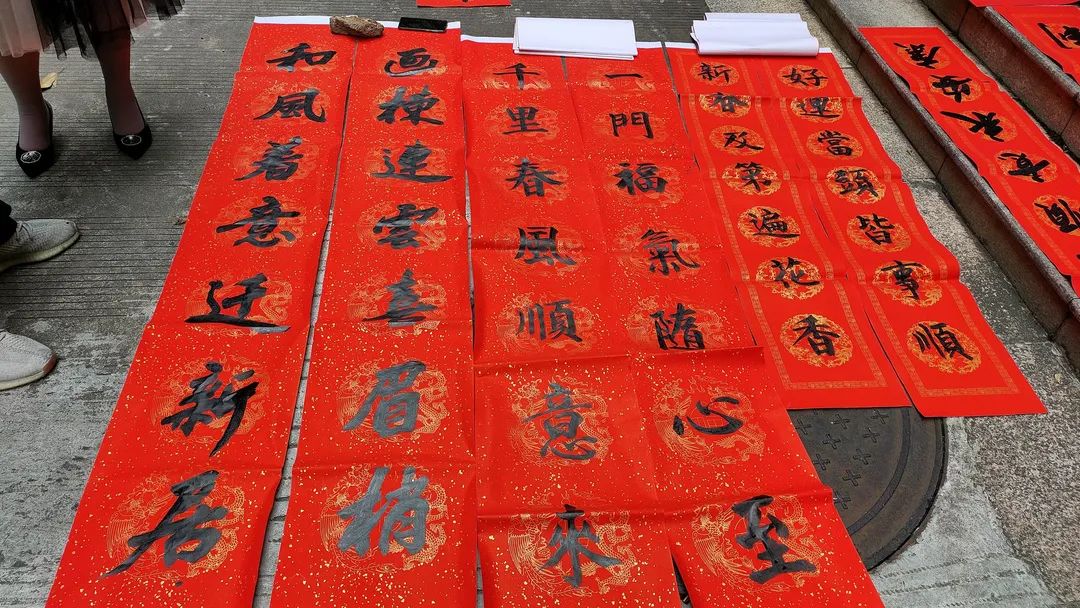 好運當頭皆事順
新春及第遍花香
一門福氣隨心至
千里春風順意來
画棟連雲喜眉梢
和風着意迁新居